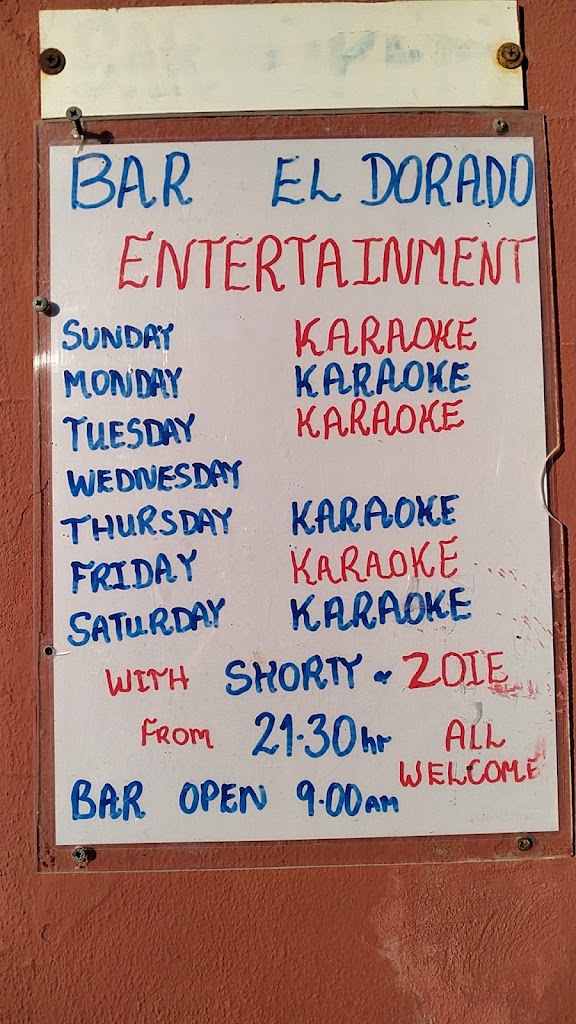 BAR EL DORADO
ENTERTAINMENT
SUNDAY KARAOKE
MONDAY KARAOKE
TUESDAY KARAOKE
WEDNESDAY
THURSDAY KARAOKE
FRIDAY KARAOKE
SATURDAY KARAOKE
WITH SHORTY & ZOIE
FROM 21.30hr ALL WELCOME
BAR OPEN 9.00am